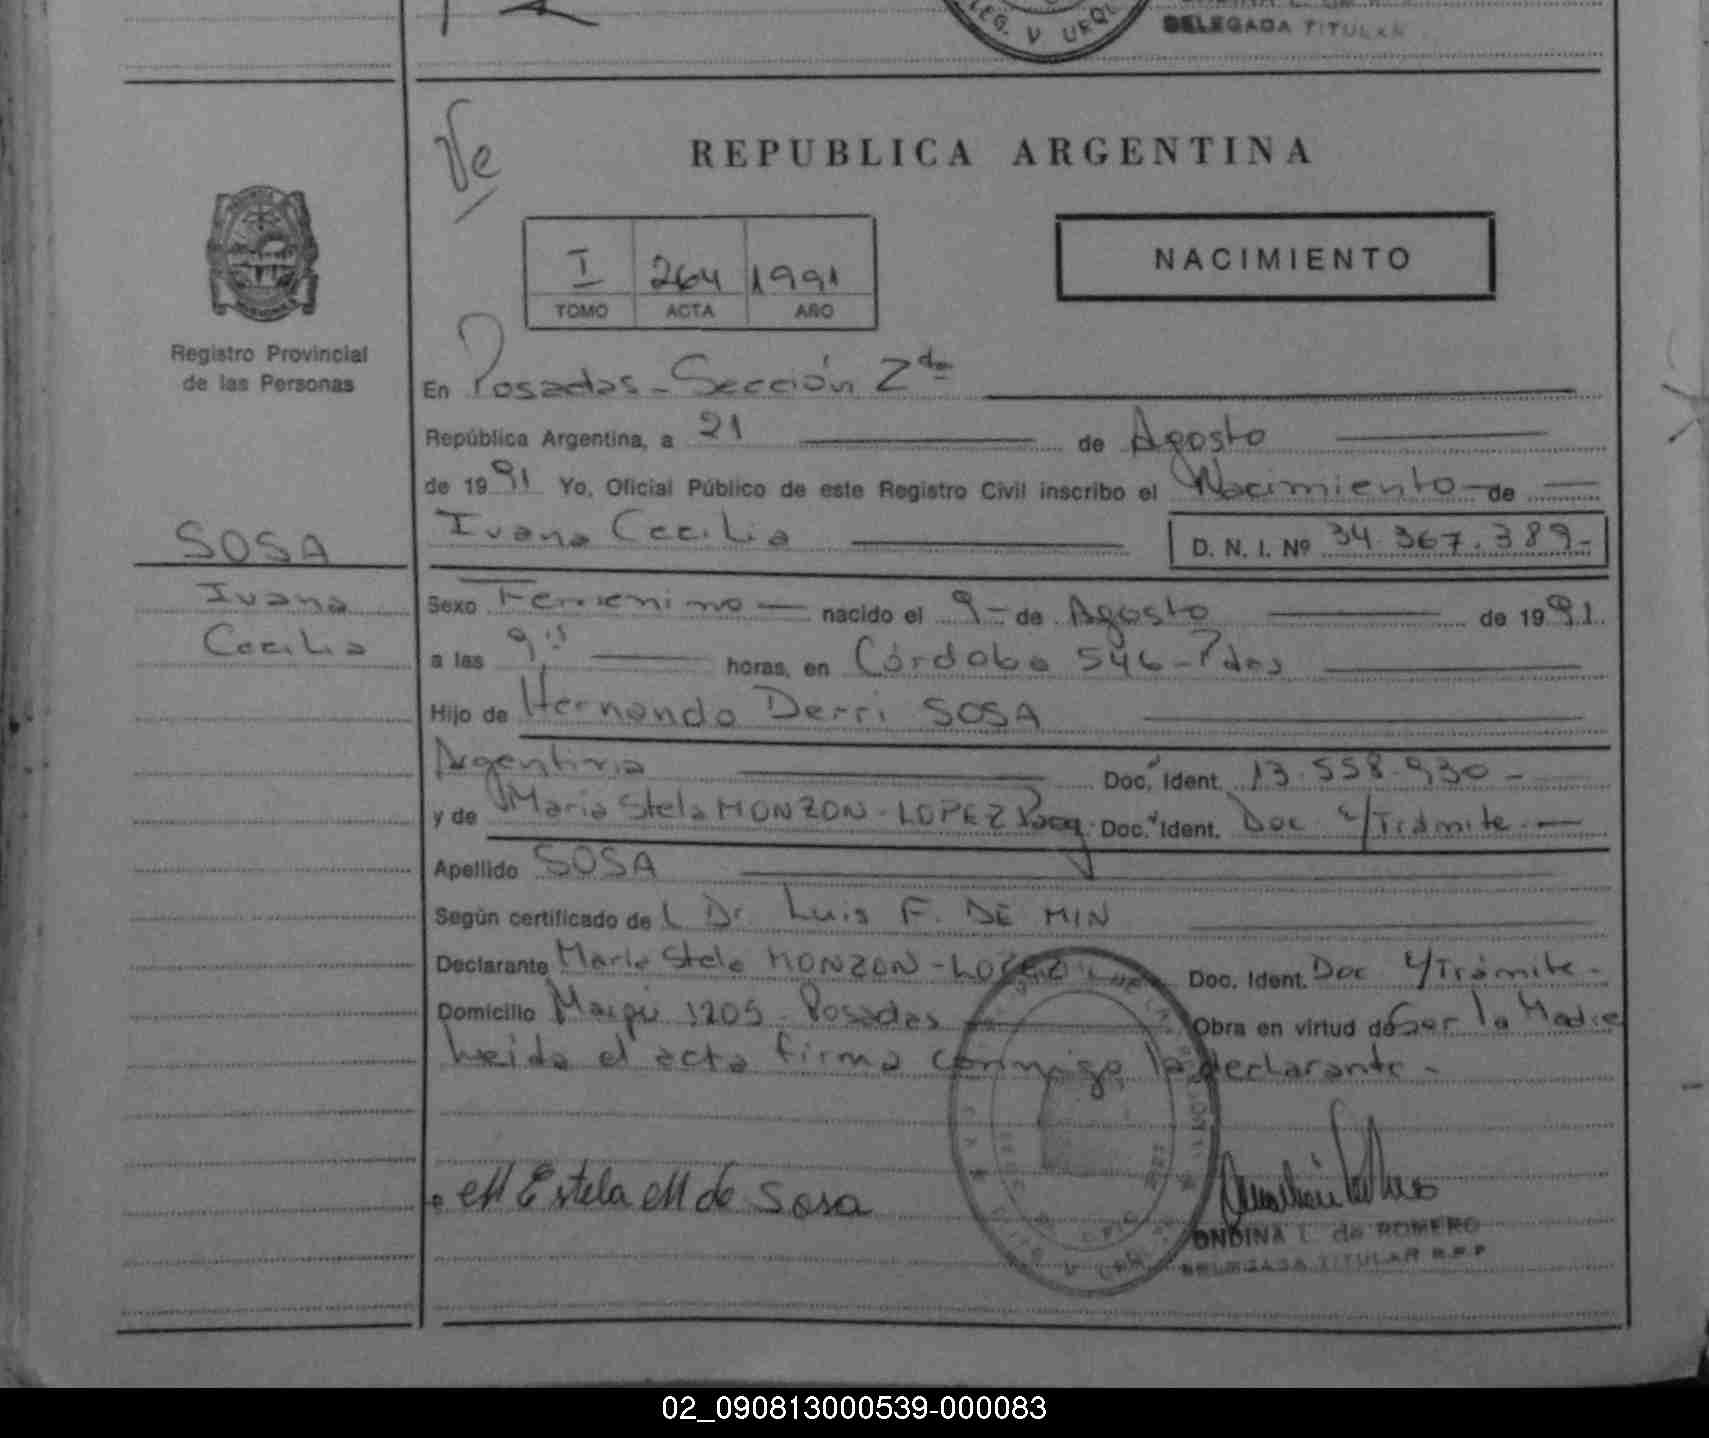 DELEGADA TITULAR
Ve
REPUBLICA ARGENTINA
NACIMIENTO
I 264 1991
TOMO ACTA AÑO
Registro Provincial
de las Personas
En Posadas - Sección 2da
República Argentina, a 21 de Agosto
de 1991 Yo, Oficial Público de este Registro Civil inscribo el Nacimiento de
Ivana Cecilia D. N. I. Nº 34.367.389-
SOSA
Ivana
Cecilia
Sexo Femenino nacido el 9 - de Agosto de 1991.
a las horas, en Córdoba 546 - Pdas
Hijo de Hernando Derri SOSA
Argentina Doc. Ident. 13.558.930 -
y de Maria Stela MONZON - LOPEZ Doc. Ident. Doc e/Trámite. -
Apellido SOSA
Según certificado de L Dr. Luis F. DE MIN
Declarante Maria Stela MONZON - LOPEZ Doc. Ident. Doc e/Trámite -
Domicilio Maipú 1205 - Posadas Obra en virtud de Ser la Madre
Leida el acta firma conmigo la declarante -
M Estela M de Sosa
ONDINA L. de ROMERO
DELEGADA TITULAR R.P.P
02_090813000539-000083